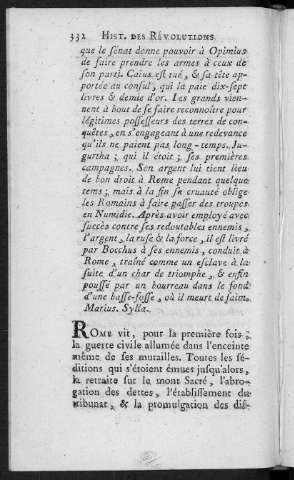 332 HIST. DES RÉVOLUTIONS
que le sénat donne pouvoir à Opimius
de faire prendre les armes à ceux de
son parti. Caius est tué, & sa tête ap-
portée au consul, qui la paie dix-sept
livres & demie d'or. Les grands vien-
nent à bout de se faire reconnoître pour
légitimes possesseurs des terres de con-
quêtes, en s'engageant à une redevance
qu'ils ne paient pas long-temps. Ju-
gurtha; qui il étoit; ses premières
campagnes. Son argent lui tient lieu
de bon droit à Rome pendant quelque
tems; mais à la fin sa cruauté oblige
les Romains à faire passer des troupes
en Numidie. Après avoir employé avec
succès contre ses redoutables ennemis,
l'argent, la ruse & la force, il est livré
par Bocchus à ses ennemis, conduit à
Rome, traîné comme un esclave à la
suite d'un char de triomphe, & enfin
poussé par un bourreau dans le fond
d'une basse-fosse, où il meurt de faim.
Marius. Sylla.
ROME vit, pour la première fois,
la guerre civile allumée dans l'enceinte
même de ses murailles. Toutes les sé-
ditions qui s'étoient émues jusqu'alors,
la retraite sur le mont Sacré, l'abro-
gation des dettes, l'établissement du
tribunat, & la promulgation des dif-